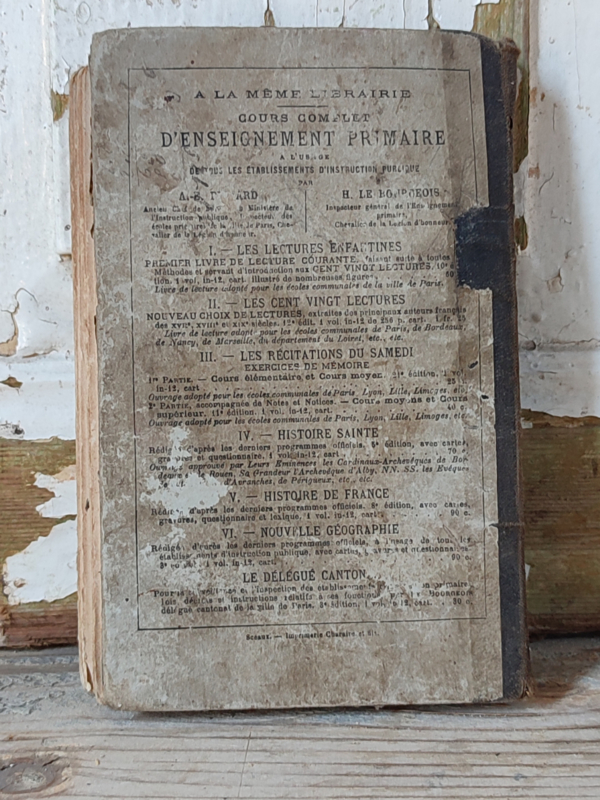 A LA MÊME LIBRAIRIE
COURS COMPLET
D'ENSEIGNEMENT PRIMAIRE
A L'USAGE
DE TOUS LES ÉTABLISSEMENTS D'INSTRUCTION PUBLIQUE
PAR
H. LE BOURGEOIS
Inspecteur général de l'Enseignement
primaire,
Chevalier de la Légion d'honneur.
I. — LES LECTURES ENFANTINES
PREMIER LIVRE DE LECTURE COURANTE, faisant suite à toutes
Méthodes et servant d'introduction aux CENT VINGT LECTURES.
tion. 1 vol. in-12, cart. Illustré de nombreuses figures
Livre de lecture adopté pour les écoles communales de la ville de Paris.
II. — LES CENT VINGT LECTURES
NOUVEAU CHOIX DE LECTURES, extraites des principaux auteurs français
des XVIIe, XVIIIe et XIXe siècles. 12e édit. 1 vol. in-12 de 256 p. cart. 1 fr. 25
Livre de lecture adopté pour les écoles communales de Paris, de Bordeaux,
de Nancy, de Marseille, du département du Loiret, etc., etc.
III. — LES RÉCITATIONS DU SAMEDI
EXERCICES DE MÉMOIRE
1re PARTIE. — Cours élémentaire et Cours moyen. 21e édition, 1 vol.
in-12, cart
Ouvrage adopté pour les écoles communales de Paris, Lyon, Lille, Limoges, etc.
2e PARTIE, accompagnée de Notes et Notices. — Cours moyen et Cours
supérieur. 11e édition. 1 vol. in-12, cart. 40 c.
Ouvrage adopté pour les écoles communales de Paris, Lyon, Lille, Limoges, etc.
IV. — HISTOIRE SAINTE
d'après les derniers programmes officiels, 5e édition, avec cartes,
et questionnaire. 1 vol. in-12, cart. 70 c.
approuvé par Leurs Éminences les Cardinaux-Archevêques de
Rouen, Sa Grandeur l'Archevêque d'Alby, NN. SS. les Évêques
d'Avranches, de Périgueux, etc., etc.
V. — HISTOIRE DE FRANCE
d'après les derniers programmes officiels. 8e édition, avec cartes,
gravures, questionnaire et lexique. 1 vol. in-12, cart. 90 c.
VI. — NOUVELLE GÉOGRAPHIE
Rédigé d'après les derniers programmes officiels, à l'usage de tous les
établissements d'instruction publique, avec cartes, gravures et questionnaires.
1 vol. in-12, cart. 60 c.
LE DÉLÉGUÉ CANTON
l'inspection des
lois, décrets et instructions relatifs à ces fonctions
délégué cantonal de la ville de Paris. 3e édition, 1 vol. in-12, cart. 80 c.
Sceaux. — Imprimerie Charaire et fils.